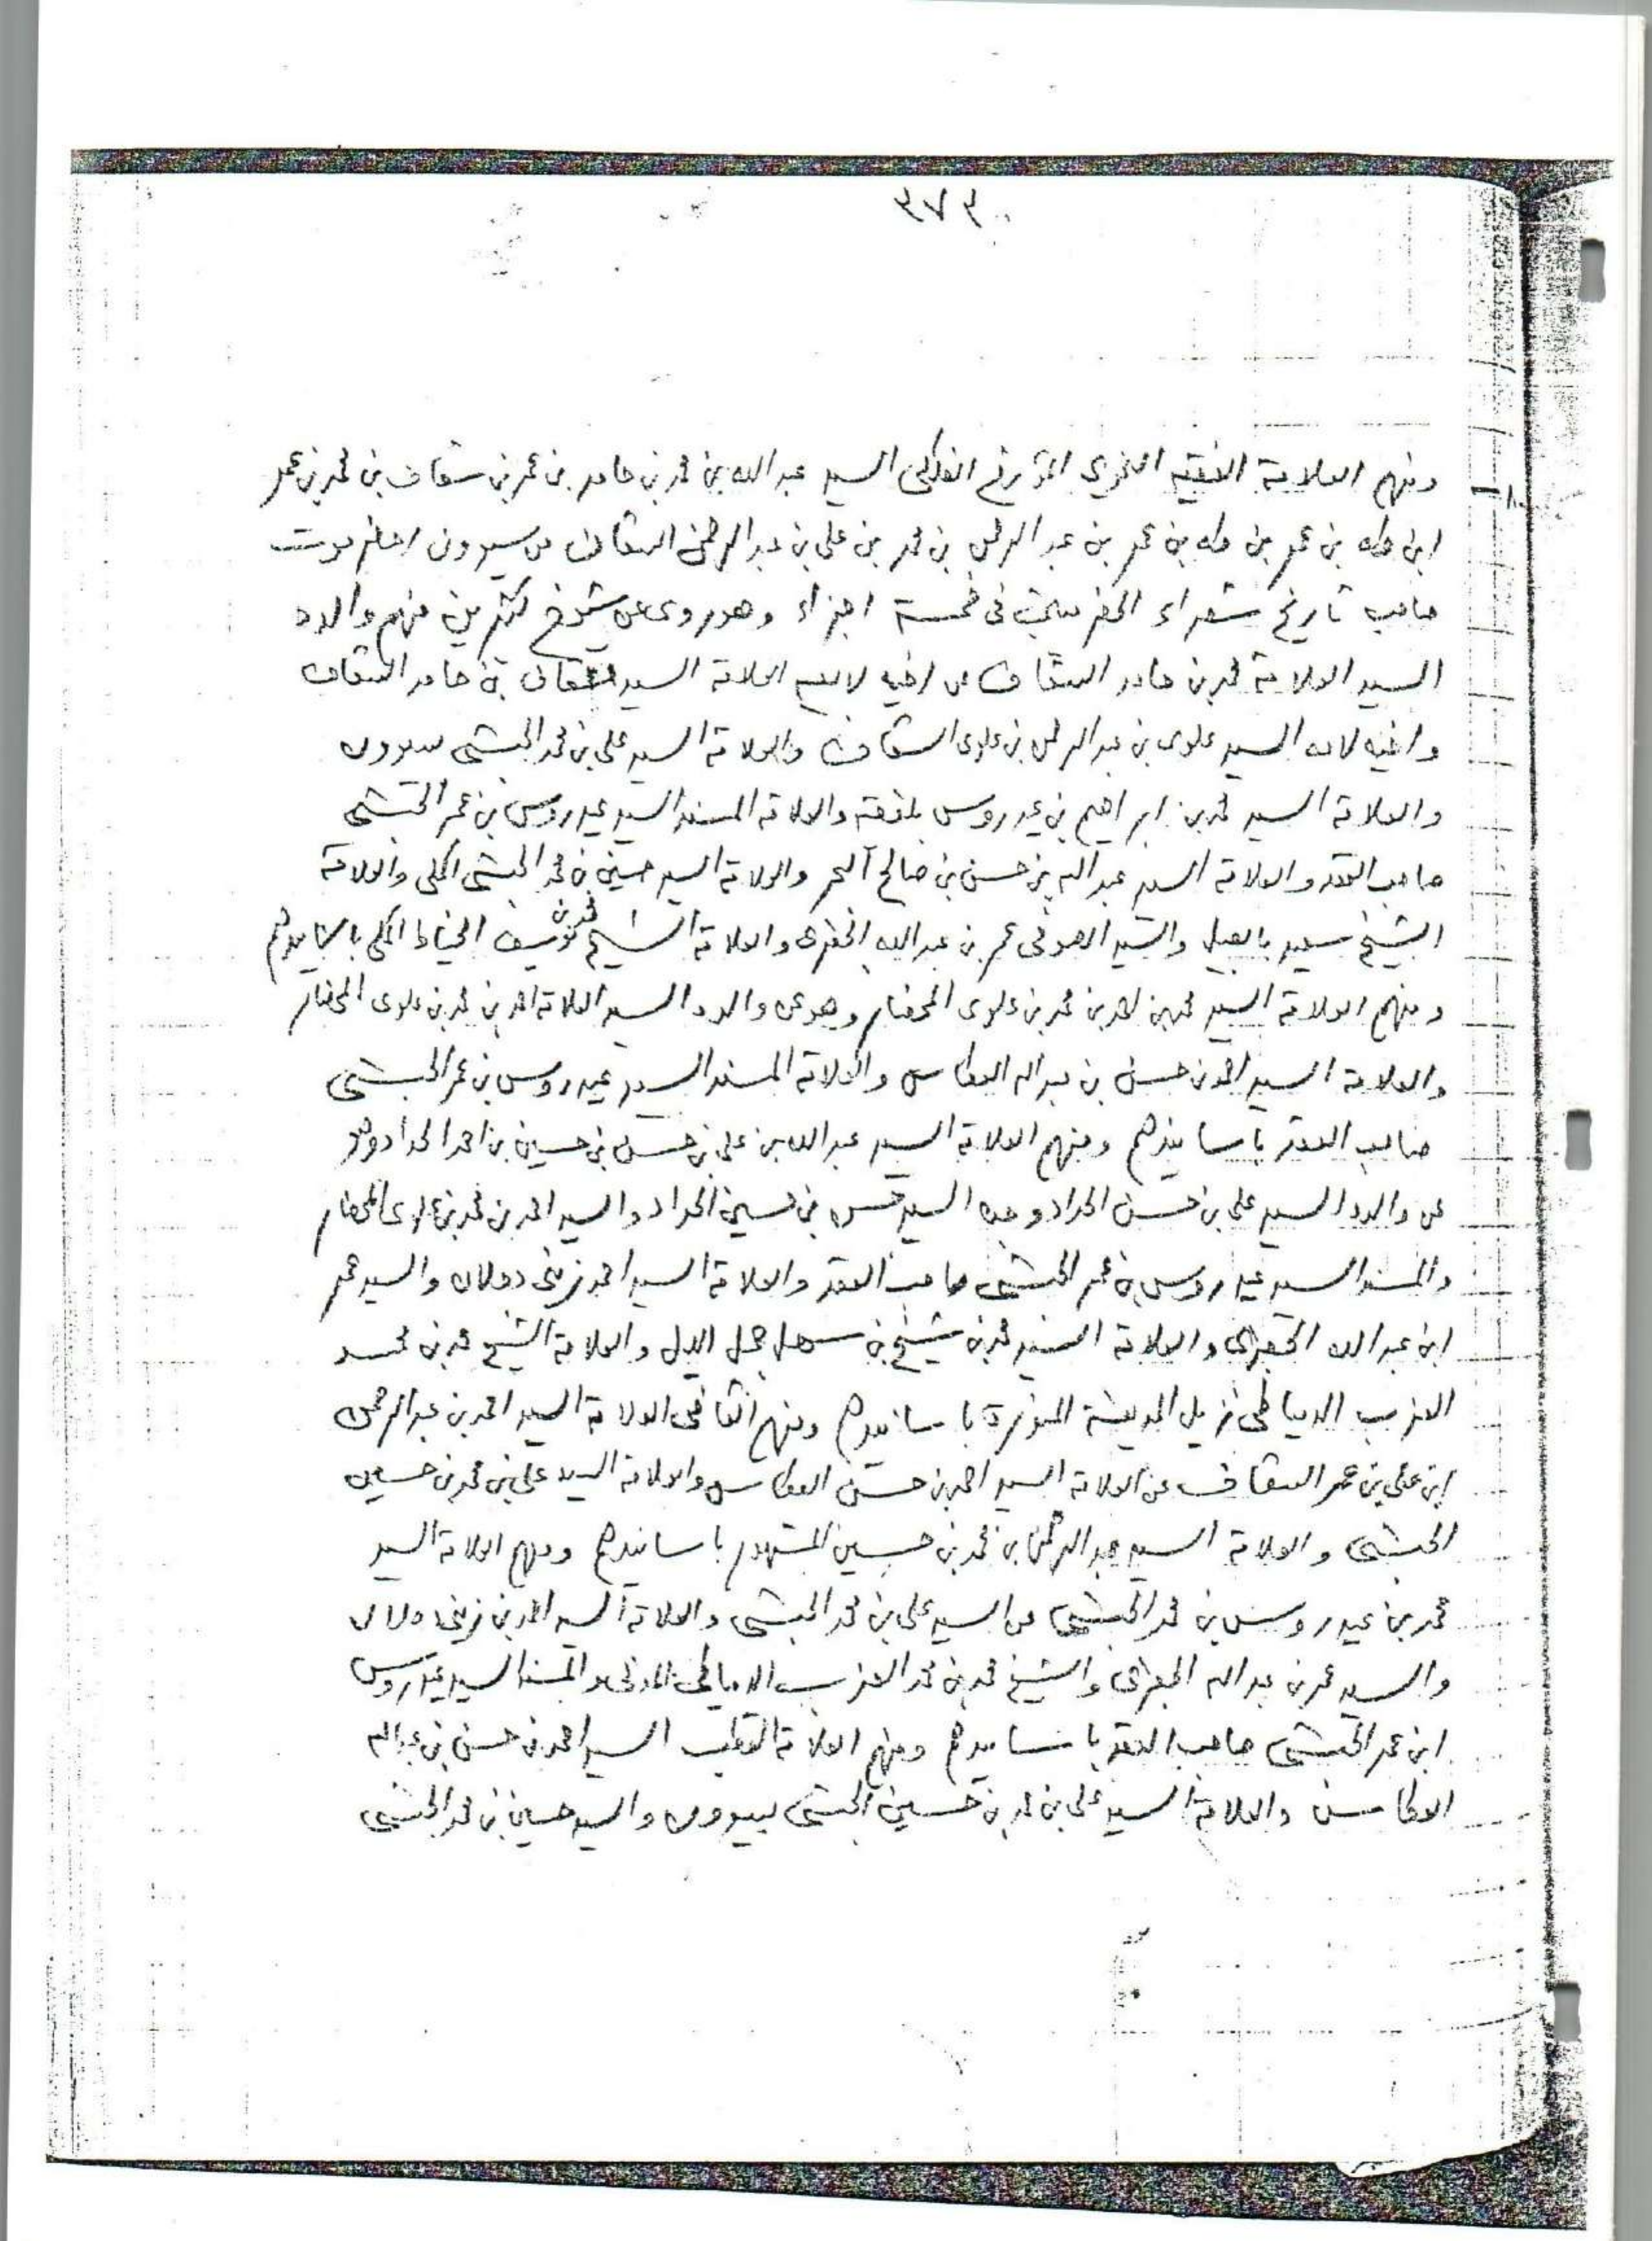 ٣٧٣
ومنهم العلامة الفقيه النحوي المؤرخ الفلكي السيد عبد الله بن محمد بن حامد بن عمر بن سقاف بن محمد بن عمر
ابن طه بن عمر بن طه بن عمر بن عبد الرحمن بن محمد بن علي بن عبد الرحمن السقاف من سيوون احضرموت
صاحب تاريخ شعراء الحضرميين في خمسة اجزاء وهو روى عن شيوخ كثيرين منهم والده
السيد العلامة محمد بن حامد السقاف عن اخيه لابيه العلامة السيد سقاف بن حامد السقاف
واخيه لامه السيد علوي بن عبد الرحمن بن علوي السقاف والعلامة السيد علي بن محمد الحبشي بسيوون
والعلامة السيد محمد بن ابراهيم بن عيدروس بلفقيه والعلامة المسند السيد عيدروس بن عمر الحبشي
صاحب العقد والعلامة السيد عبد الله بن حسن بن صالح البحر والعلامة السيد حسين بن محمد الحبشي المكي والعلامة
الشيخ سعيد بابصيل والسيد الصوفي عمر بن عبد الله الجفري والعلامة الشيخ محمد بن يوسف الخياط المكي باسانيدهم
ومنهم العلامة السيد محمد بن احمد بن محمد بن علوي المحضار وهو عن والده السيد العلامة احمد بن محمد بن علوي المحضار
والعلامة السيد احمد بن حسن بن عبد الله العطاس والعلامة المسند السيد عيدروس بن عمر الحبشي
صاحب العقد باسانيدهم ومنهم العلامة السيد عبد الله بن علي بن حسن بن حسين بن احمد الحداد وهو
عن والده السيد علي بن حسن الحداد وجده السيد حسن بن حسين الحداد والسيد احمد بن محمد بن علوي المحضار
والمسند السيد عيدروس بن عمر الحبشي صاحب العقد والعلامة السيد احمد زيني دحلان والسيد عمر
ابن عبد الله الجفري والعلامة السيد محمد بن شيخ بن سهل جمل الليل والعلامة الشيخ محمد بن محمد
العزب الدمياطي نزيل المدينة المنورة باسانيدهم ومنهم القاضي العلامة السيد احمد بن عبد الرحمن
ابن علي بن عمر السقاف عن العلامة السيد احمد بن حسن العطاس والعلامة السيد علي بن محمد بن حسين
الحبشي والعلامة السيد عبد الرحمن بن محمد بن حسين المشهور باسانيدهم ومنهم العلامة السيد
محمد بن عيدروس بن محمد الحبشي عن السيد علي بن محمد الحبشي والعلامة السيد احمد بن زيني دحلان
والسيد عمر بن عبد الله الجفري والشيخ محمد بن محمد العزب الدمياطي المدني والمسند السيد عيدروس
ابن عمر الحبشي صاحب العقد باسانيدهم ومنهم العلامة القطب السيد احمد بن حسن بن عبد الله
العطاس والعلامة السيد علي بن محمد بن حسين الحبشي بسيوون والسيد حسين بن محمد الحبشي